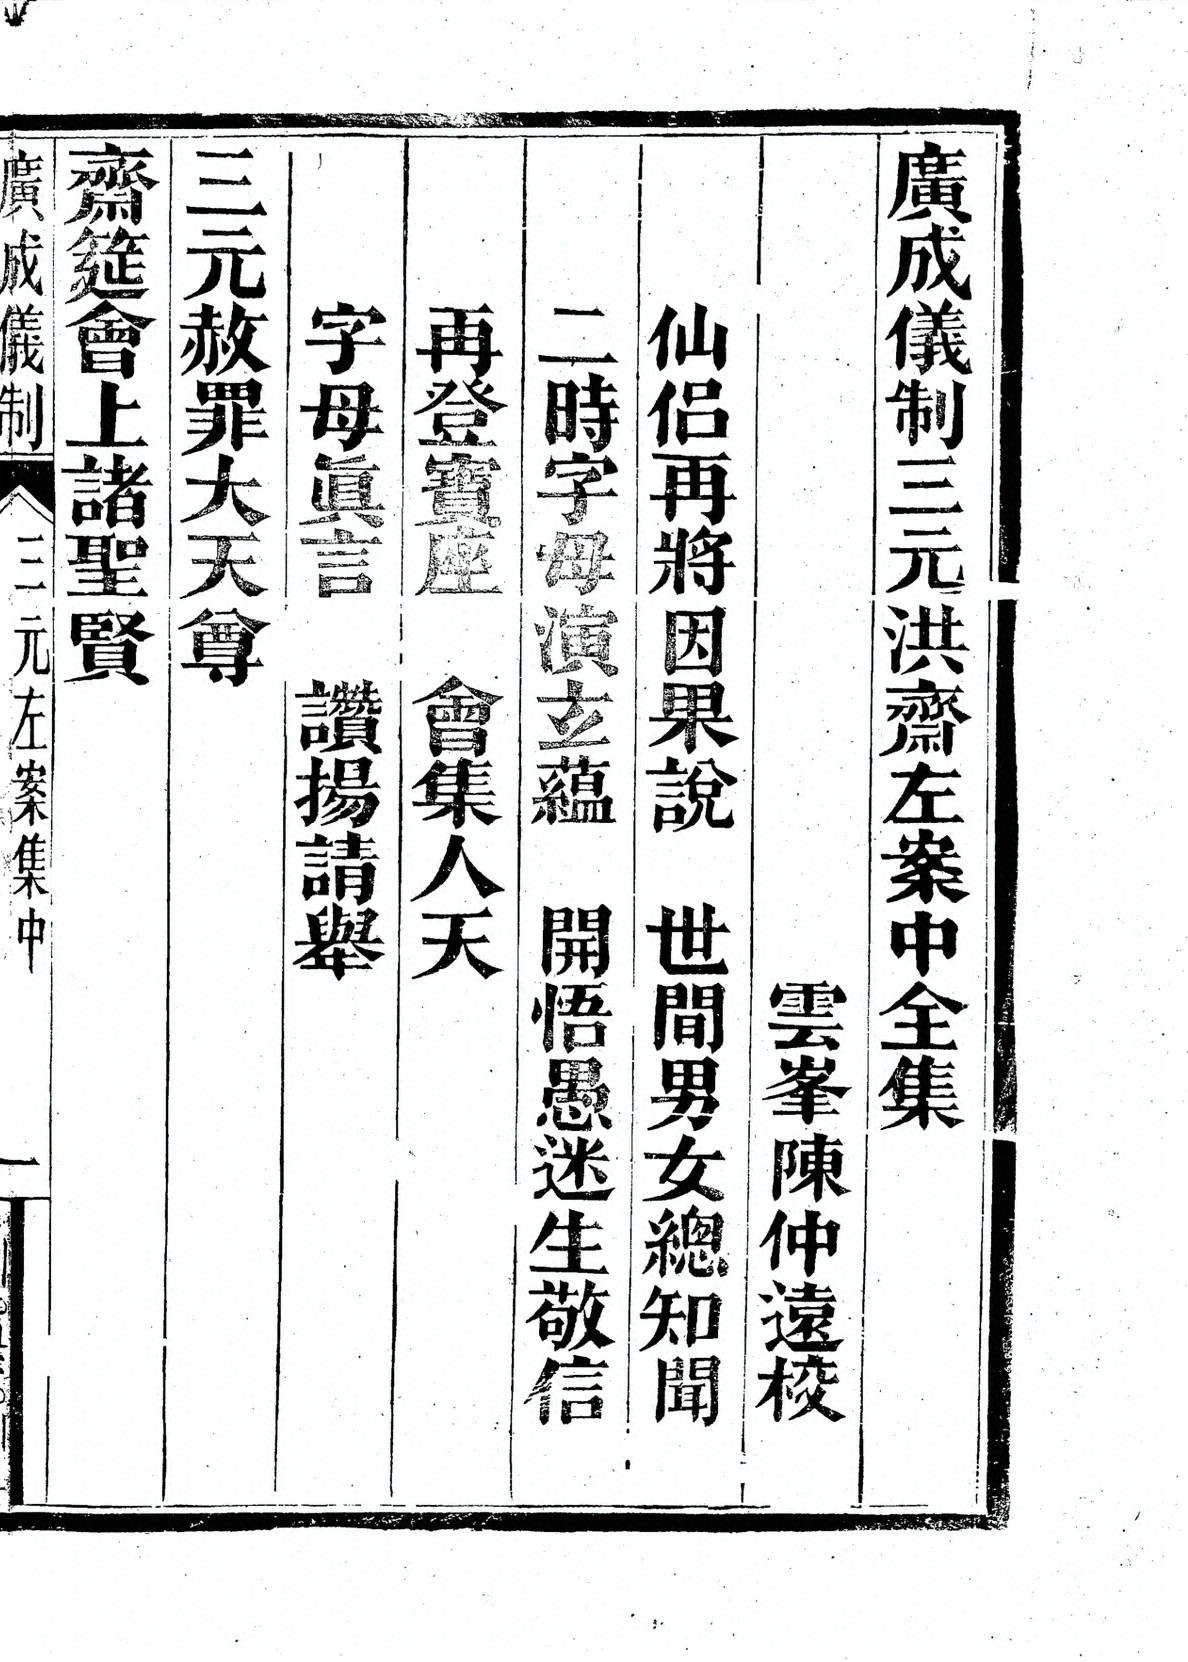 廣成儀制三元洪齋左案中全集
雲峯陳仲遠校
仙侶再將因果說　世間男女總知聞
二時字母演玄蘊　開悟愚迷生敬信
再登寶座　會集人天
字母眞言　讚揚請舉
三元赦罪大天尊
齋筵會上諸聖賢
廣成儀制　三元左案集中　一